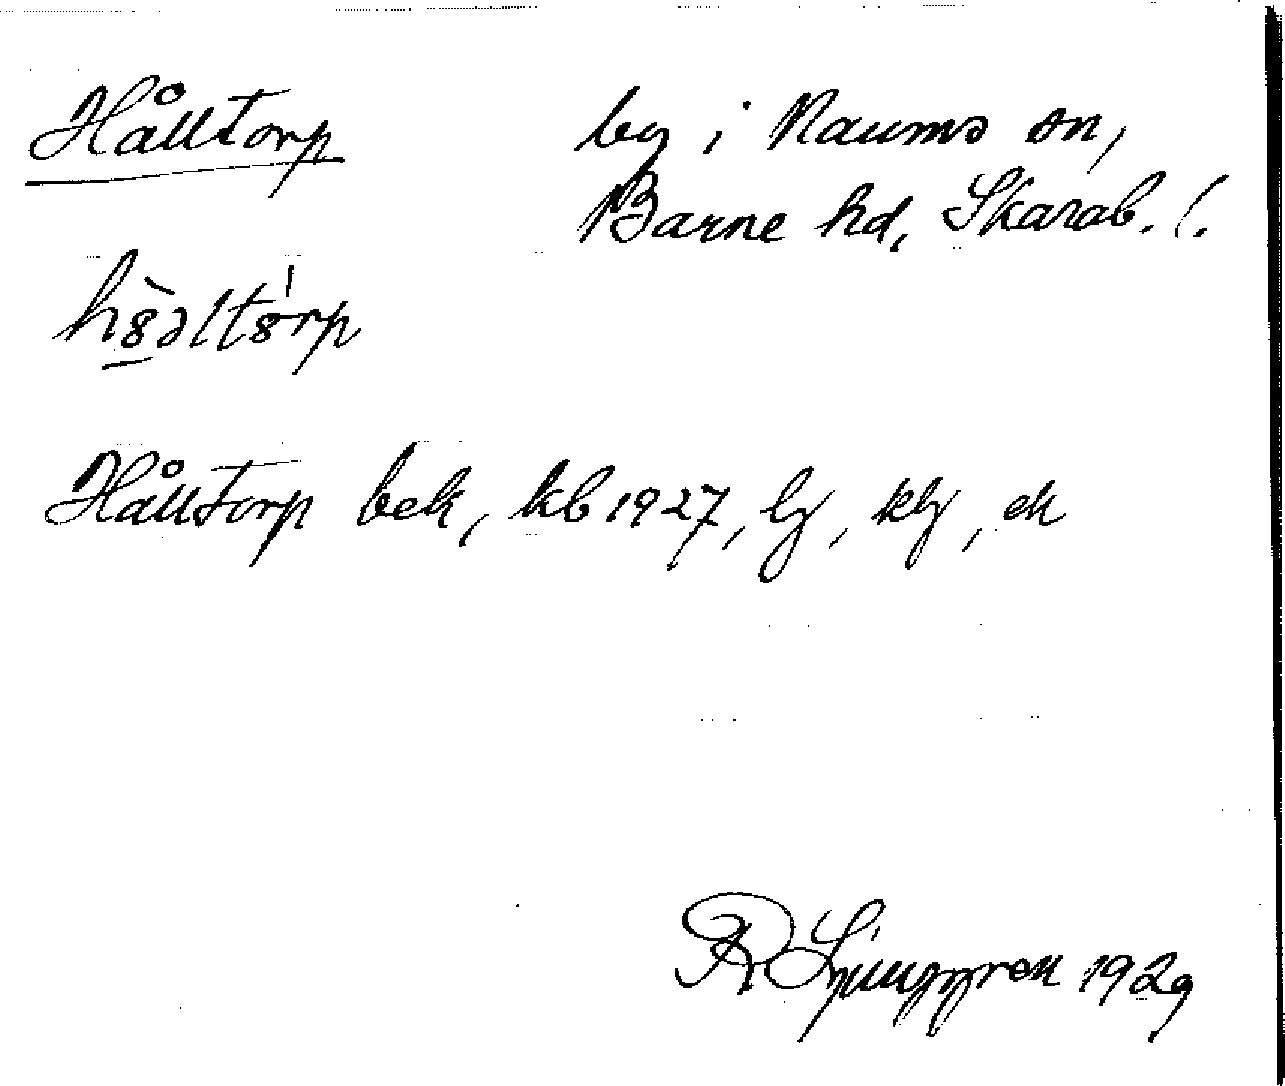 Hålltorp by i Naums sn,
Barne hd, Skarab. l.
hò̱əltó̱rp
Hålltorp bek, kb 1927, lj, klj, ek
R Ljunggren 1929